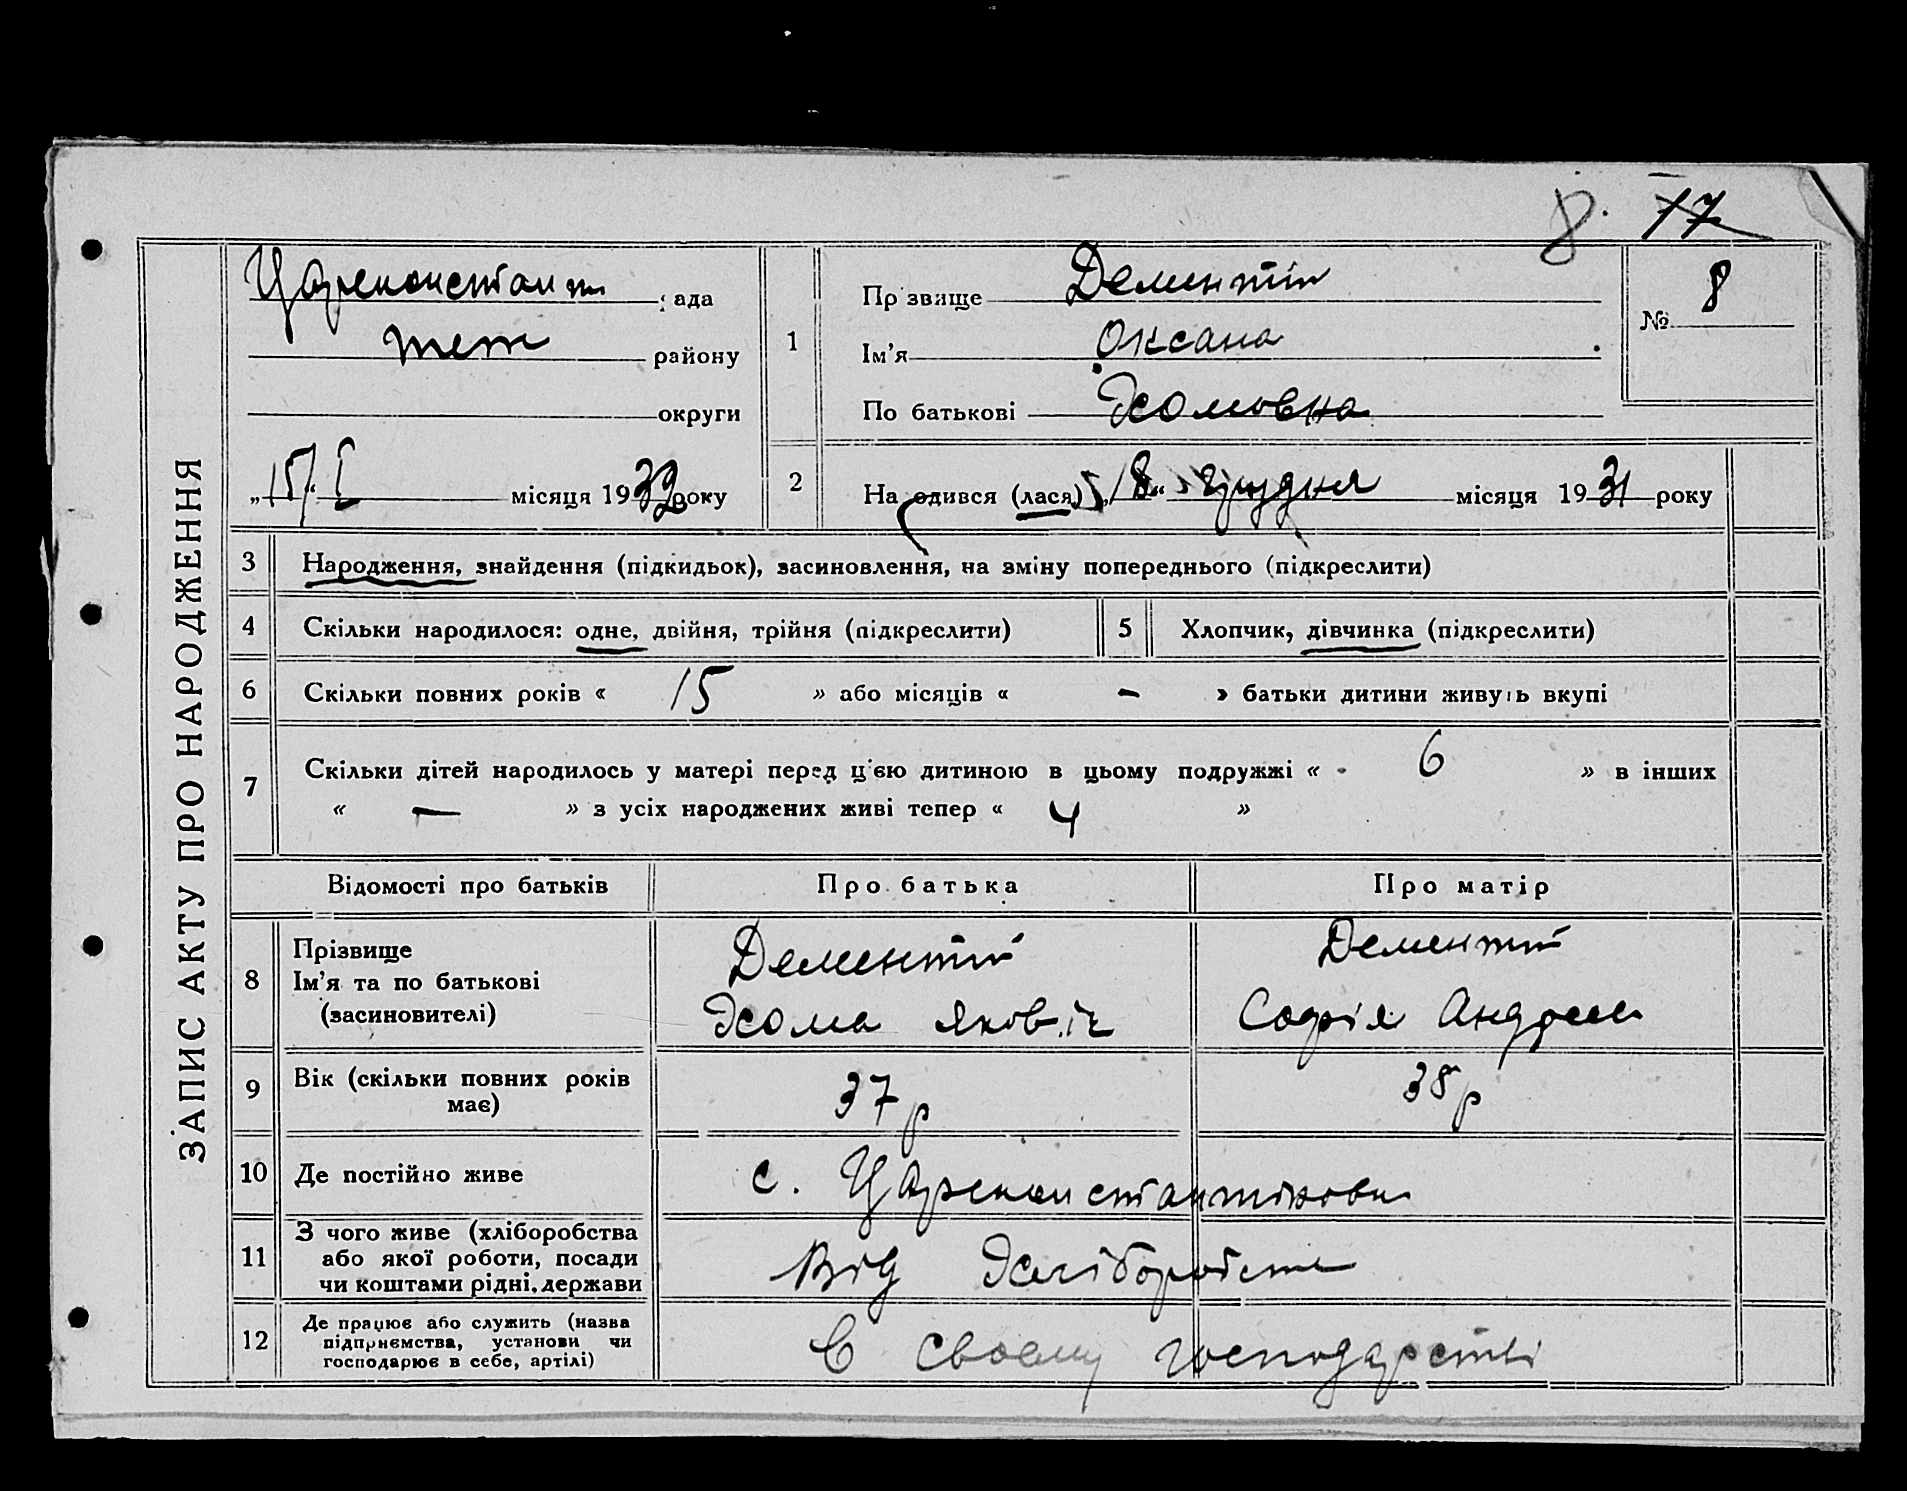 8. 17
ЗАПИС АКТУ ПРО НАРОДЖЕННЯ
Цареконстант рада
тет району
округи
„15/“ I місяця 1932 року
1
Прізвище Дементій
Ім'я Оксана
По батькові Хомовна
№ 8
2 Народився (лася) „18“ грудня місяця 1931 року
3 Народження, знайдення (підкидьок), засиновлення, на зміну попереднього (підкреслити)
4 Скільки народилося: одне, двійня, трійня (підкреслити) 5 Хлопчик, дівчинка (підкреслити)
6 Скільки повних років « 15 » або місяців « - » батьки дитини живуть вкупі
7 Скільки дітей народилось у матері перед цією дитиною в цьому подружжі « 6 » в інших
« — » з усіх народжених живі тепер « 4 »
Відомості про батьків Про батька Про матір
8 Прізвище
Ім'я та по батькові
(засиновителі)
Дементій
Хома Яковіч
Дементій
Софія Андрее
9 Вік (скільки повних років
має)
37 р
38 р
10 Де постійно живе с. Цареконстантіновка
11 З чого живе (хліборобства
або якої роботи, посади
чи коштами рідні, держави
Від Хліборобств
12 Де працює або служить (назва
підприємства, установи чи
господарює в себе, артілі)
В своему господарстві